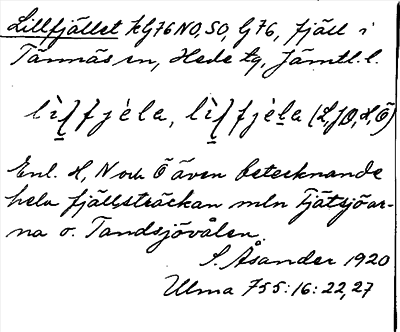 Lillfjället kG76NO,SO, G76, fjäll i
Tännäs sn, Hede tg, Jämtl. l.
lìl̥fjèla, lìl̥fjèla (L,JÖ,H,Ö)
Enl. H, N och Ö även betecknande
hela fjällsträckan mln Tjätsjöar-
na o. Tandsjövålen.
S. Åsander 1920
Ulma 755:16:22,27